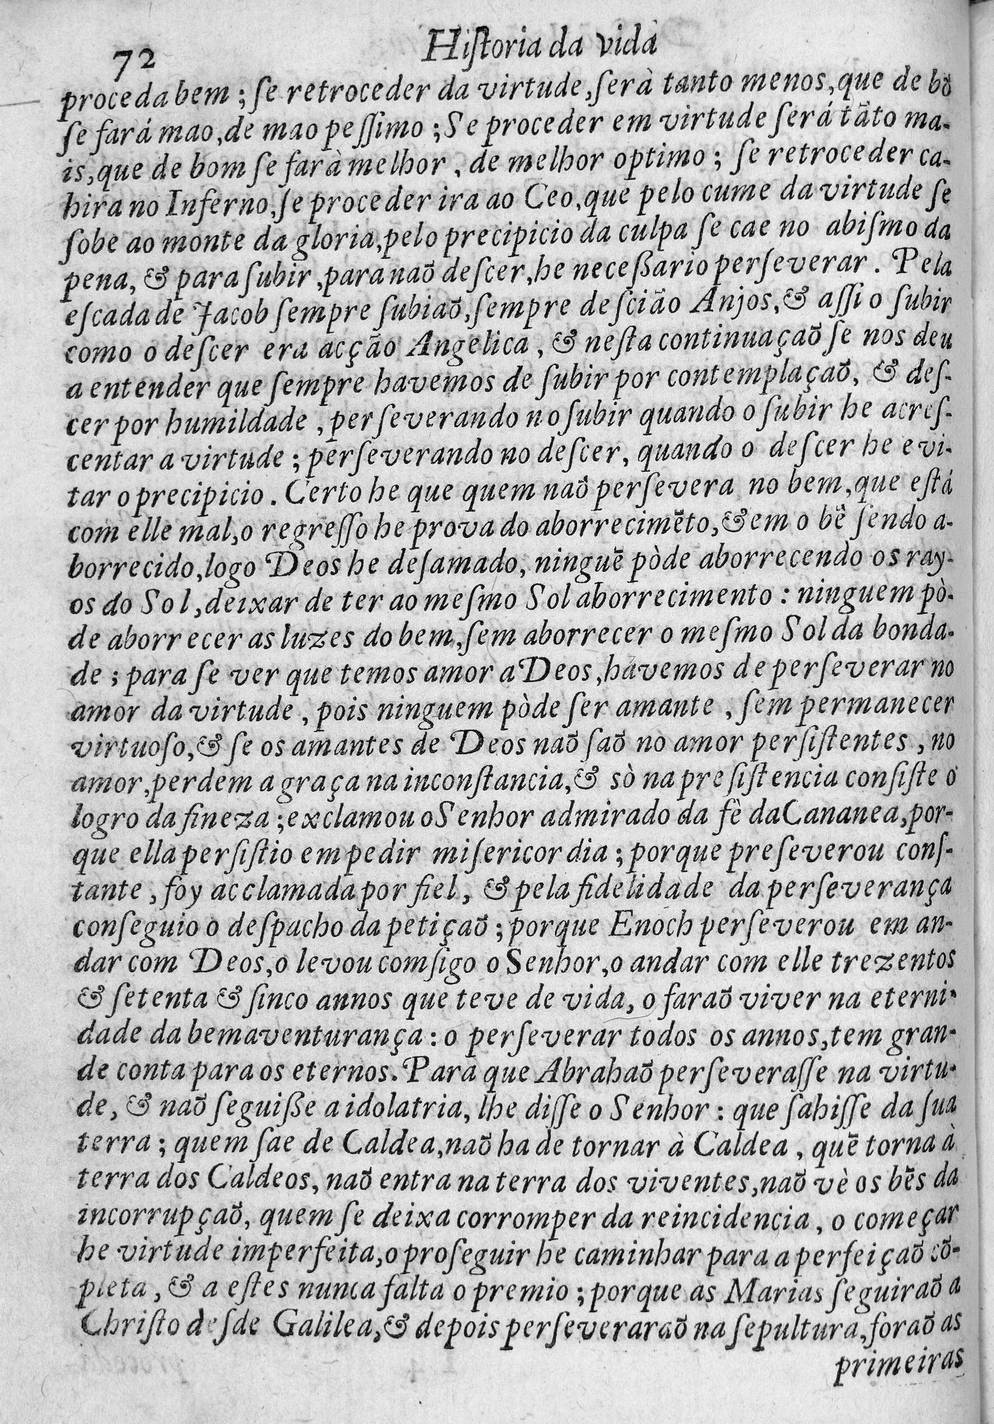 72 Hiſtoria da vida
proceda bem ; ſe retroceder da virtude, ſerà tanto menos, que de bõ
ſe fará mao, de mao peſſimo ; Se proceder em virtude ſerá tãto ma-
is, que de bom ſe farà melhor , de melhor optimo ; ſe retroceder ca-
hira no Inferno, ſe proceder ira ao Ceo, que pelo cume da virtude ſe
ſobe ao monte da gloria, pelo precipicio da culpa ſe cae no abiſmo da
pena, & para ſubir, para naõ deſcer, he neceßario perſeverar . Pela
eſcada de Jacob ſempre ſubiaõ, ſempre deſcião Anjos, & aſſi o ſubir
como o deſcer era acção Angelica , & neſta continuaçaõ ſe nos deu
a entender que ſempre havemos de ſubir por contemplaçaõ, & deſ-
cer por humildade , perſeverando no ſubir quando o ſubir he acreſ-
centar a virtude ; perſeverando no deſcer, quando o deſcer he evi-
tar o precipicio . Certo he que quem naõ perſevera no bem, que eſtá
com elle mal, o regreſſo he prova do aborrecimẽto, & em o bẽ ſendo a-
borrecido, logo Deos he deſamado, ninguẽ pòde aborrecendo os ray-
os do Sol, deixar de ter ao meſmo Sol aborrecimento : ninguem pò-
de aborrecer as luzes do bem, ſem aborrecer o meſmo Sol da bonda-
de ; para ſe ver que temos amor a Deos, havemos de perſeverar no
amor da virtude , pois ninguem pòde ſer amante , ſem permanecer
virtuoſo, & ſe os amantes de Deos naõ ſaõ no amor perſiſtentes , no
amor, perdem a graça na inconſtancia, & sò na preſiſtencia conſiſte o
logro da fineza ; exclamou o Senhor admirado da fè da Cananea, por-
que ella perſiſtio em pedir miſericordia ; porque preſeverou conſ-
tante , foy acclamada por fiel, & pela fidelidade da perſeverança
conſeguio o deſpacho da petiçaõ ; porque Enoch perſeverou em an-
dar com Deos, o levou comſigo o Senhor, o andar com elle trezentos
& ſetenta & ſinco annos que teve de vida, o faraõ viver na eterni-
dade da bemaventurança : o perſeverar todos os annos, tem gran-
de conta para os eternos. Para que Abrahaõ perſeveraſſe na virtu-
de, & naõ ſeguiße a idolatria, lhe diſſe o Senhor : que ſahiſſe da ſua
terra ; quem ſae de Caldea, naõ ha de tornar à Caldea , quẽ torna à
terra dos Caldeos, naõ entra na terra dos viventes, naõ vè os bẽs da
incorrupçaõ, quem ſe deixa corromper da reincidencia , o começar
he virtude imperfeita, o proſeguir he caminhar para a perfeiçaõ cõ-
pleta , & a eſtes nunca falta o premio ; porque as Marias ſeguiraõ a
Chriſto deſde Galilea, & depois perſeveraraõ na ſepultura, foraõ as
primeiras